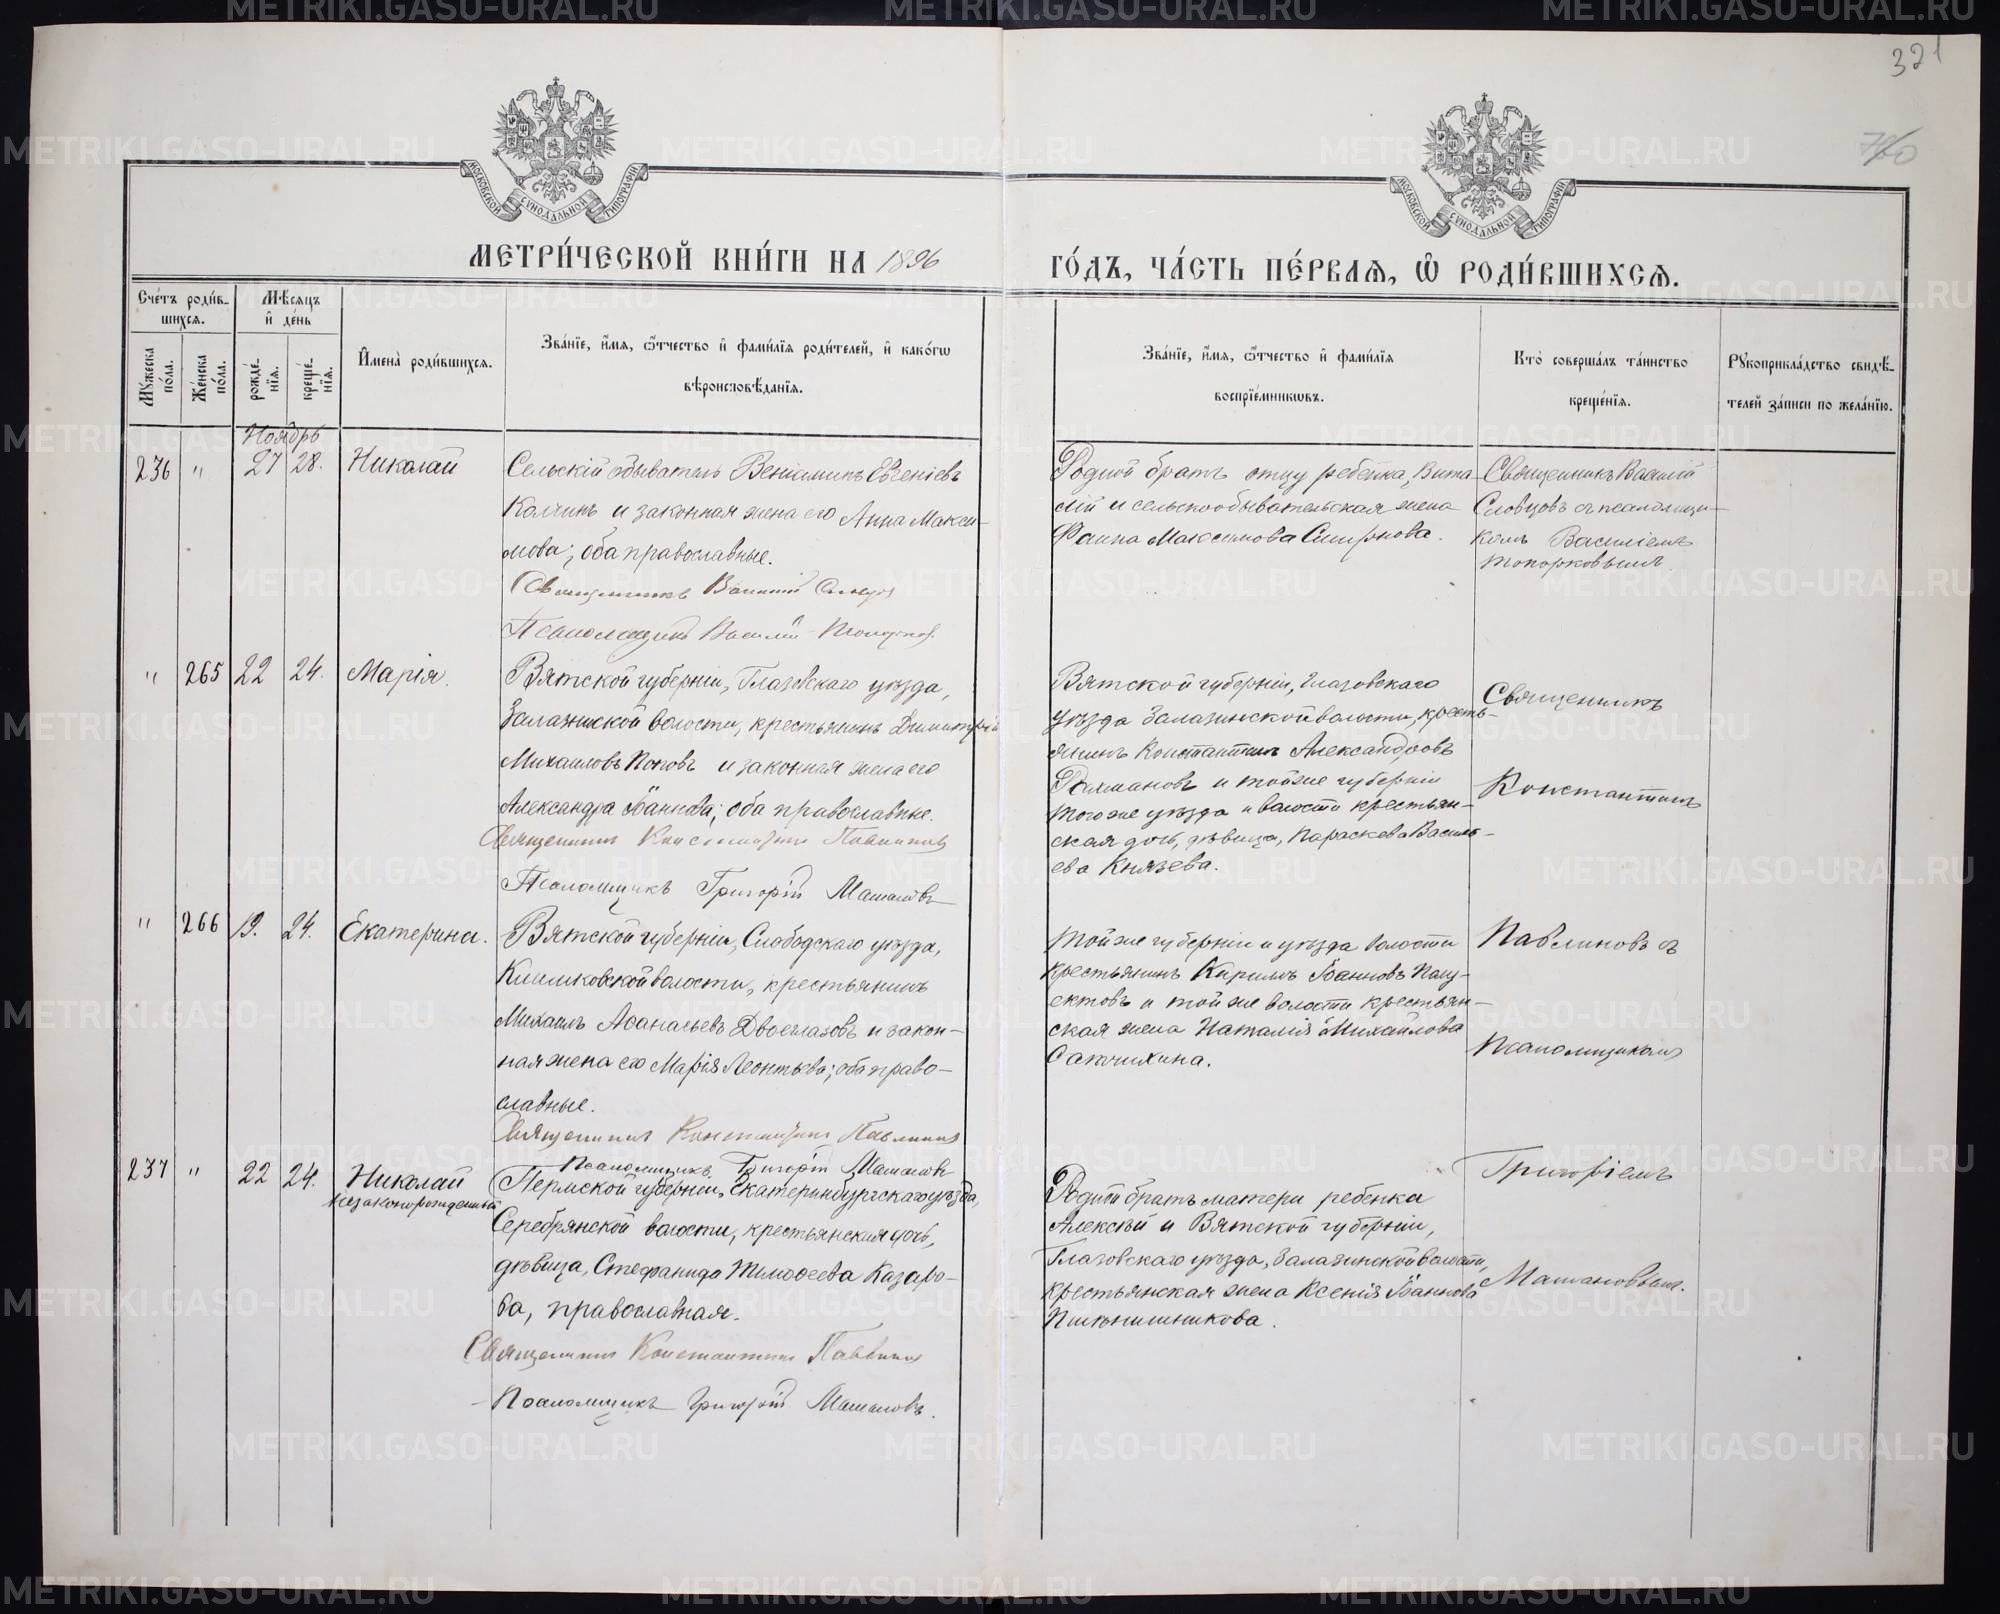 321
760
МОСКОВСКОЙ СѴНОДАЛЬНОЙ ТИПОГРАФІИ
МОСКОВСКОЙ СѴНОДАЛЬНОЙ ТИПОГРАФІИ
МЕТРИ́ЧЕСКОЙ КНИ́ГИ НА 1896
ГО́ДЪ, ЧА́СТЬ ПЕ́РВАЯ, Ѡ҆ РОДИ́ВШИХСѦ.
Сче́тъ роди́в-
шихсѧ.
Мѣ́сѧцъ
и҆ де́нь
Мꙋ́жеска по́ла.
Же́нска по́ла.
рожде́-нїѧ.
креще́-нїѧ.
И҆мена̀ роди́вшихсѧ.
Зва́нїе, и҆́мѧ, ѻ҆́тчество и҆ фами́лїѧ роди́телей, и҆ како́гѡ
вѣроисповѣ́данїѧ.
Зва́нїе, и҆́мѧ, ѻ҆́тчество и҆ фами́лїѧ
воспрїе́мникѡвъ.
Кто̀ соверша́лъ та́инство
креще́нїѧ.
Рꙋкоприкла́дство свидѣ́-
телей за́писи по жела́нїю.
Ноябрь
236 " 27 28. Николай
Сельскій обыватель Веніаминъ Евгеніевъ
Колчинъ и законная жена его Анна Макси-
мова; оба православные.
Священникъ Василій Словцовъ
Псаломщикъ Василій Топорковъ.
Родной братъ отцу ребенка, Вита-
лій и сельскообывательская жена
Фаина Максимова Смирнова.
Священникъ Василій
Словцовъ съ псаломщи-
комъ Василіемъ
Топорковымъ.
" 265 22 24. Марія.
Вятской губерніи, Глазовскаго уѣзда,
Залазнинской волости, крестьянинъ Димитрій
Михаиловъ Поповъ и законная жена его
Александра Іоаннова; оба православные.
Священникъ Константинъ Павлиновъ
Псаломщикъ Григорій Машановъ
Вятской губерніи, Глазовскаго
уѣзда Залазинской волости, кресть-
янинъ Константинъ Александровъ
Рахмановъ и той же губерніи
того же уѣзда и волости крестьян-
ская дочь, дѣвица, Параскева Василь-
ева Князева.
Священникъ
Константинъ
" 266 19. 24. Екатерина.
Вятской губерніи, Слободскаго уѣзда,
волости, крестьянинъ
Михаилъ Аѳанасьевъ Двоеглазовъ и закон-
ная жена его Марія Леонтьева; оба право-
славные.
Священникъ Константинъ Павлиновъ
Псаломщикъ Григорій Машановъ
Той же губерніи и уѣзда волости
крестьянинъ Кирилъ Іоанновъ Полу-
ектовъ и той же волости крестьян-
ская жена Наталія Михайлова
Саточихина.
Павлиновъ съ
Псаломщикомъ
237 " 22 24. Николай
незаконорожденный
Пермской губерніи, Екатеринбургскаго уѣзда,
Серебрянской волости, крестьянская дочь,
дѣвица, Стефанида Тимоѳеева Казаро-
ва, православная.
Священникъ Константинъ Павлиновъ
Псаломщикъ Григорій Машановъ.
Родной братъ матери ребенка
Алексѣй и Вятской губерніи,
Глазовскаго уѣзда, Залазинской волости,
крестьянская жена Ксенія Іоаннова
Пшенишникова.
Григоріемъ
Машановымъ.
METRIKI.GASO-URAL.RU